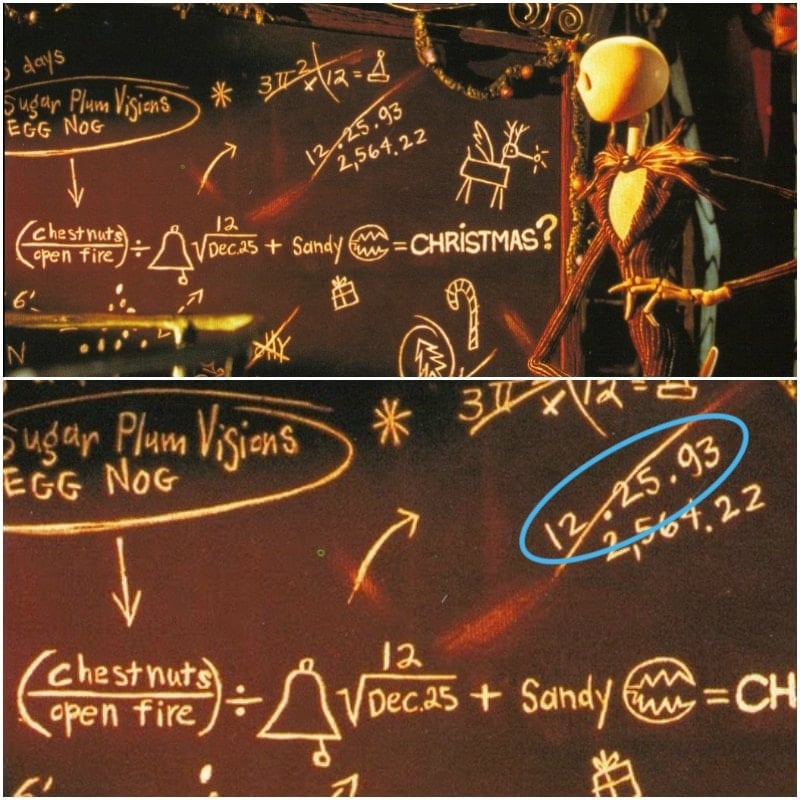 days
Sugar Plum Visions
EGG NOG
3π² x 12 =
12.25.93
2,564.22
(chestnuts
open fire) ÷ √ 12
Dec.25 + Sandy = CHRISTMAS?
6'
N
Sugar Plum Visions
EGG NOG
3π x 12 =
12.25.93
2,564.22
(chestnuts
open fire) ÷ √ 12
Dec.25 + Sandy = CH
6'